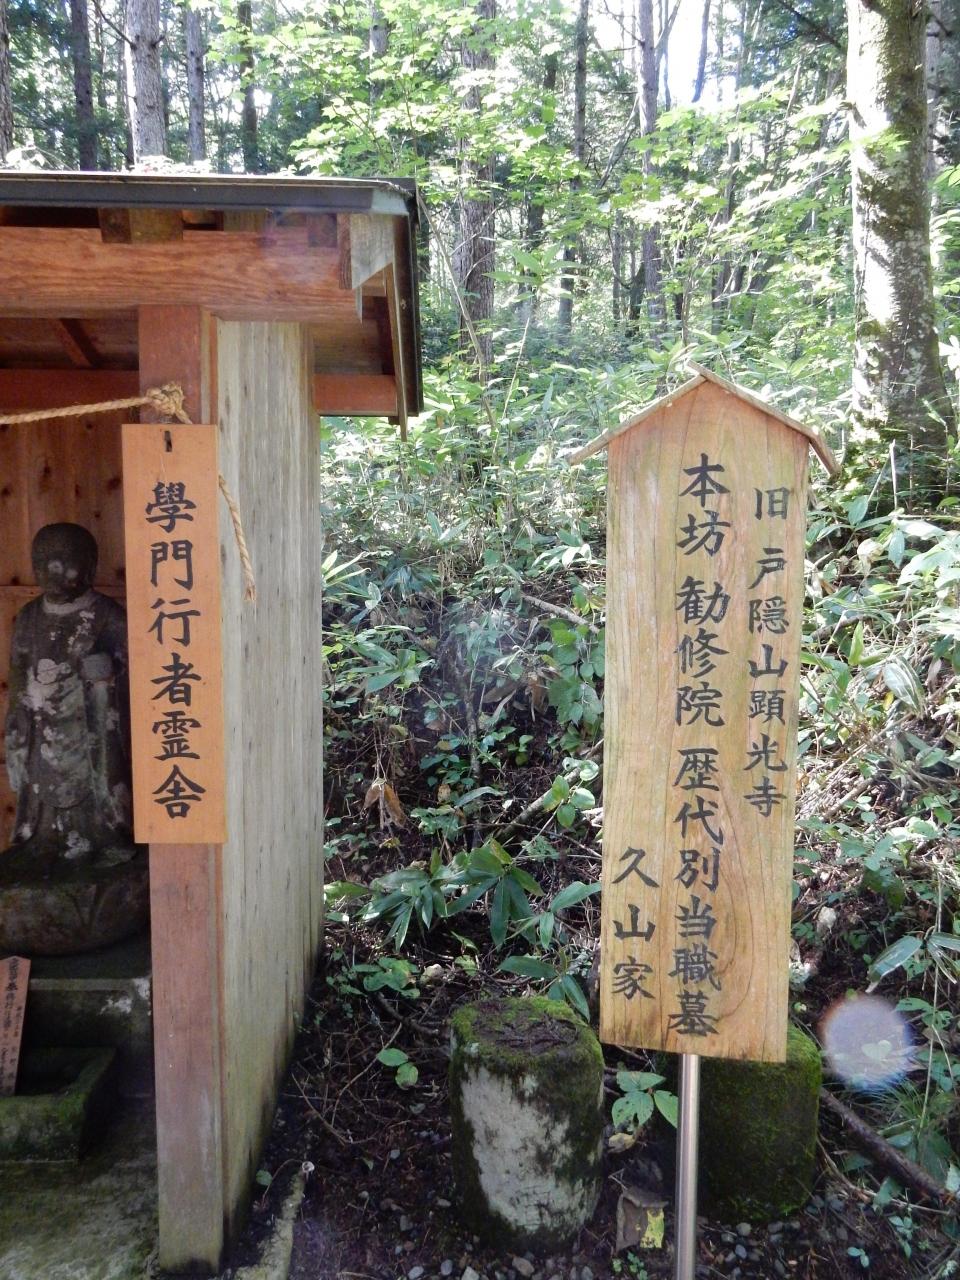 旧戸隠山顕光寺
本坊 勧修院 歴代別当職墓
久山家
學門行者霊舎